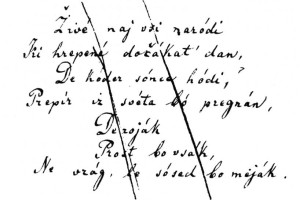 Živé naj vsi naródi
Ki hrepené dočakat' dan,
De koder sónce hódi,
Prepír iz svéta bó pregnán,
De roják
Prost bo vsák,
Ne vrág, le sósed bo meják.